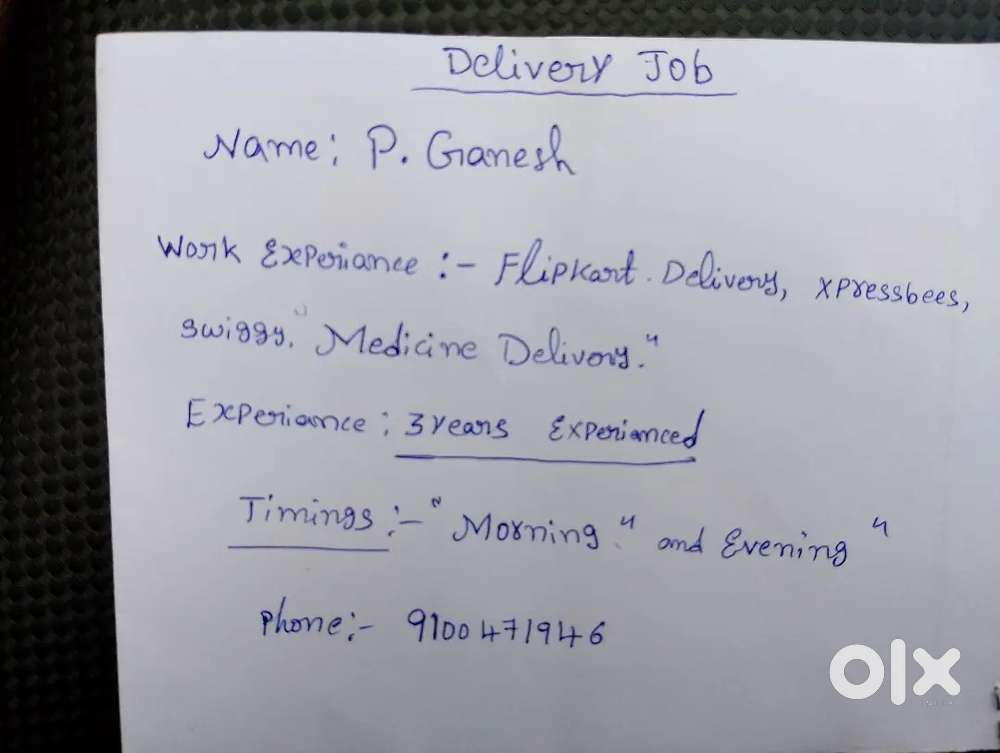 Delivery Job
Name: P. Ganesh
Work Experiance :- Flipkart. Delivery, xpressbees,
swiggy. "Medicine Delivery."
Experiance : 3 years Experianced
Timings :- "Morning." and Evening"
Phone:- 9100471946
olx